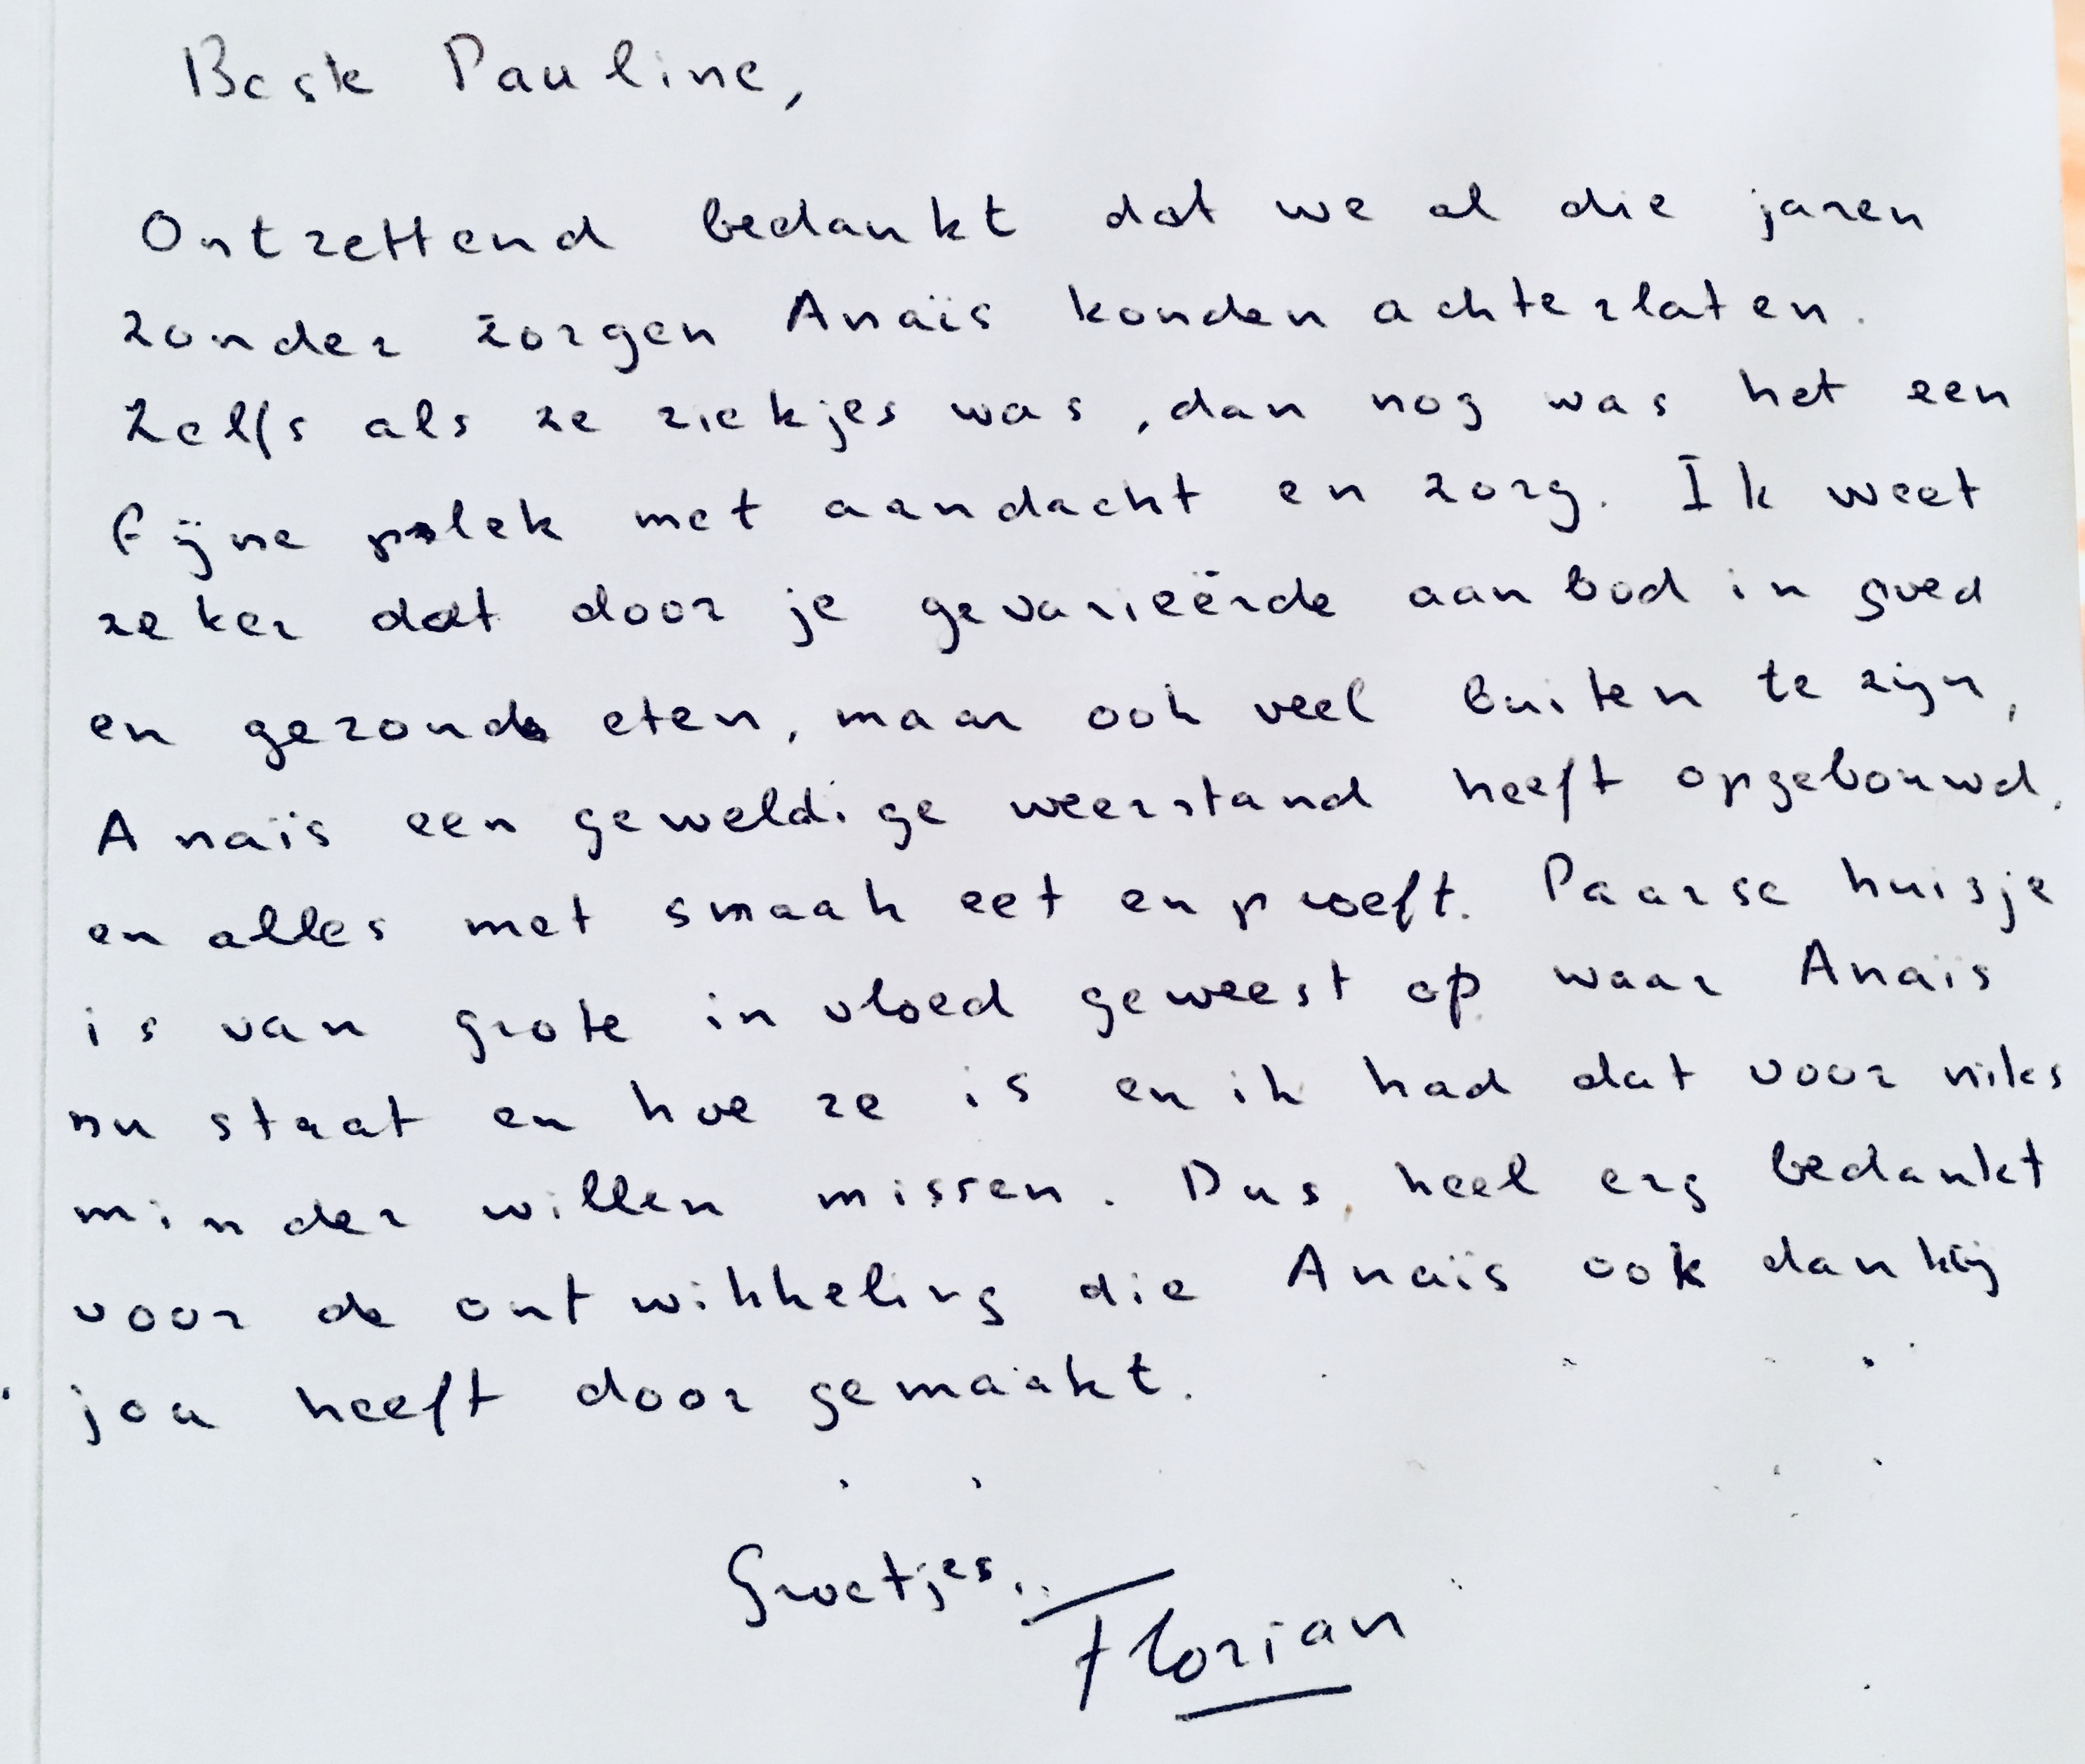 Beste Pauline,
Ontzettend bedankt dat we al die jaren
zonder zorgen Anaïs konden achterlaten.
Zelfs als ze ziekjes was, dan nog was het een
fijne plek met aandacht en zorg. Ik weet
zeker dat door je gevarieërde aanbod in goed
en gezond eten, maar ook veel buiten te zijn,
Anaïs een geweldige weerstand heeft opgebouwd,
en alles met smaak eet en proeft. Paarse huisje
is van grote invloed geweest op waar Anaïs
nu staat en hoe ze is en ik had dat voor niks
minder willen missen. Dus, heel erg bedankt
voor de ontwikkeling die Anaïs ook dankij
jou heeft door gemaakt.
Groetjes..
Florian